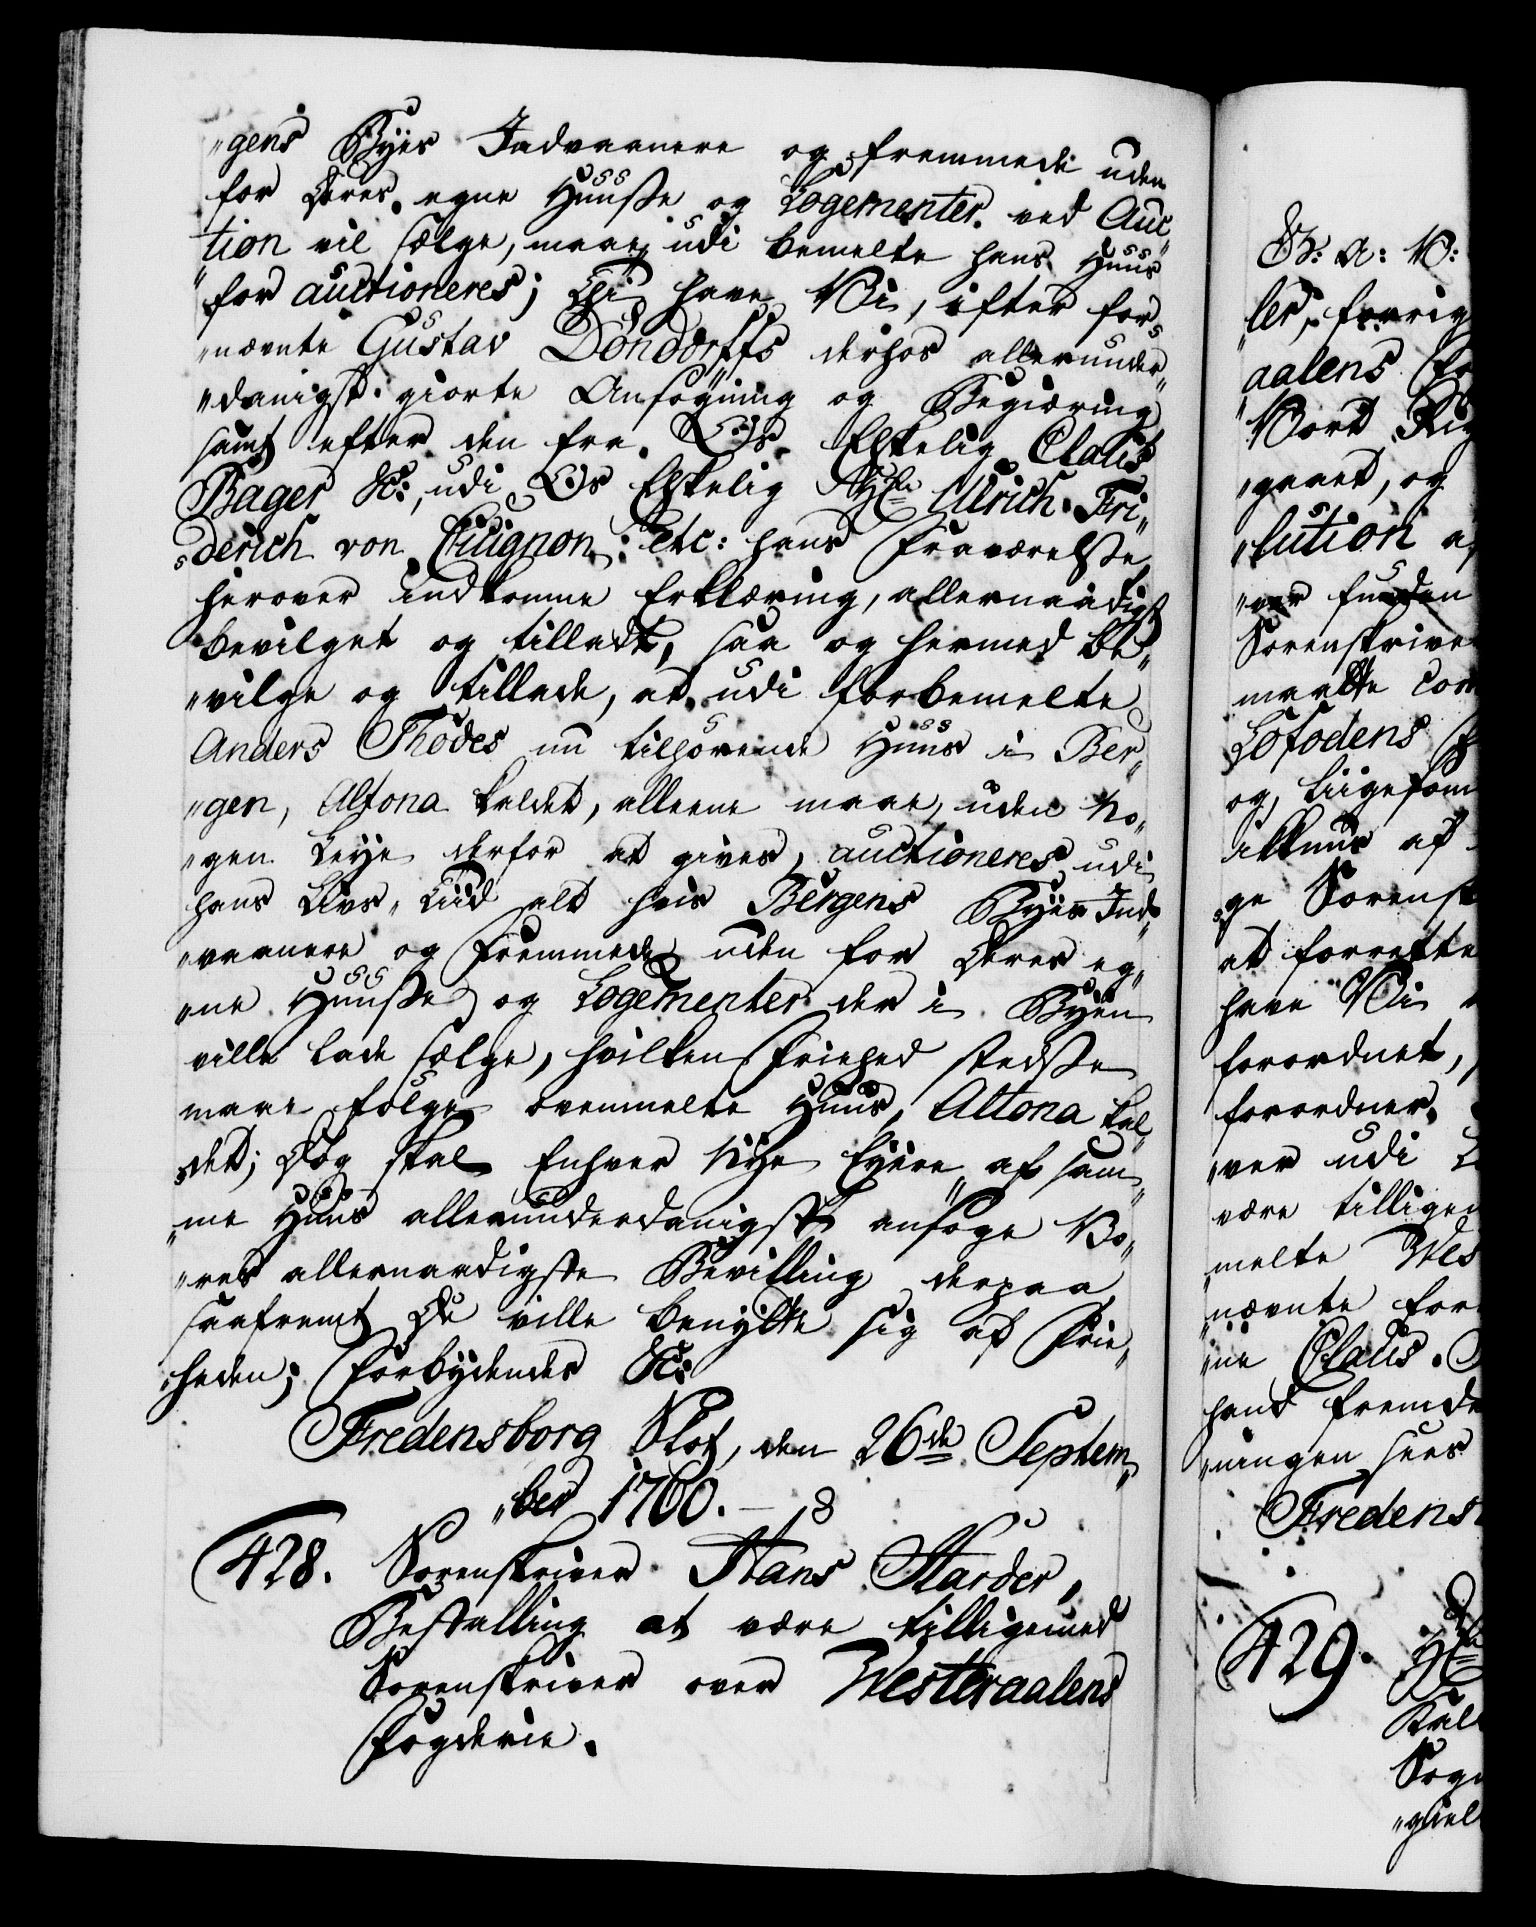 "gens Byes Indvaanere og fremmede uden
for deres egne Huuße og Logementer ved Auc„
"tion vil sælge, maae udi bemelte hans Huus
for auctioneres; Thi have Vi, efter for„
"nævnte Gustav Döndorffs derhos allerunder„
"danigst giorte Ansøgning og Begiæring
samt efter den fra Os Elskelig Claus
Bager &c:, udi Os Elskelig Hr. Ulrich Fri„
"derich von Cicignon: etc: hans Fraværelße
herover indkomne Erklæring, allernaadigst
bevilget og tilladt, saa og hermed be„
"vilge og tillade, at udi forbemelte
Anders Thodes nu tilhørende Huus i Ber„
"gen, Altona kaldet, alleene maae, uden No„
"gen Leye derfor at gives, auctioneres udi
hans Livs„Tiid alt hvis Bergens Byes Ind„
"vaanere og Fremmede uden for deres eg„
"ne Huuße og Logementer der i Byen
ville lade sælge, hvilken Friehed stedße
maae følge ovenmelte Huus, Altona kal„
"det; Dog skal Enhver Nye Eyere af sam„
"me Huus allerunderdanigst ansøge Vo„
"res allernaadigste Bevilling derpaa
saafremt De ville benytte sig af Frie„
"heden; Forbydendes &c:
Fredensborg Slot, den 26de Septem„
"ber 1760.
428. Sorenskriver Hans Harder,
Bestalling at være tilligemed
Sorenskriver over Westeraalens
Fogderie.
G: A: V:
ler, forrig
aalens
Vort Rig
"gaard, og
"lution a
"ver funden
Sorenskrive
maatte con
Lofodens
og, liigesom
af
ge Sorensk
at forrette
have Vi
forordnet,
forordner.
"ver udi
være tilligem
melte Wes
nævnte for
ne Claus
hand fremde
"ningen sees
Fredens
429. Hr.
Kald
Sogn
"giel